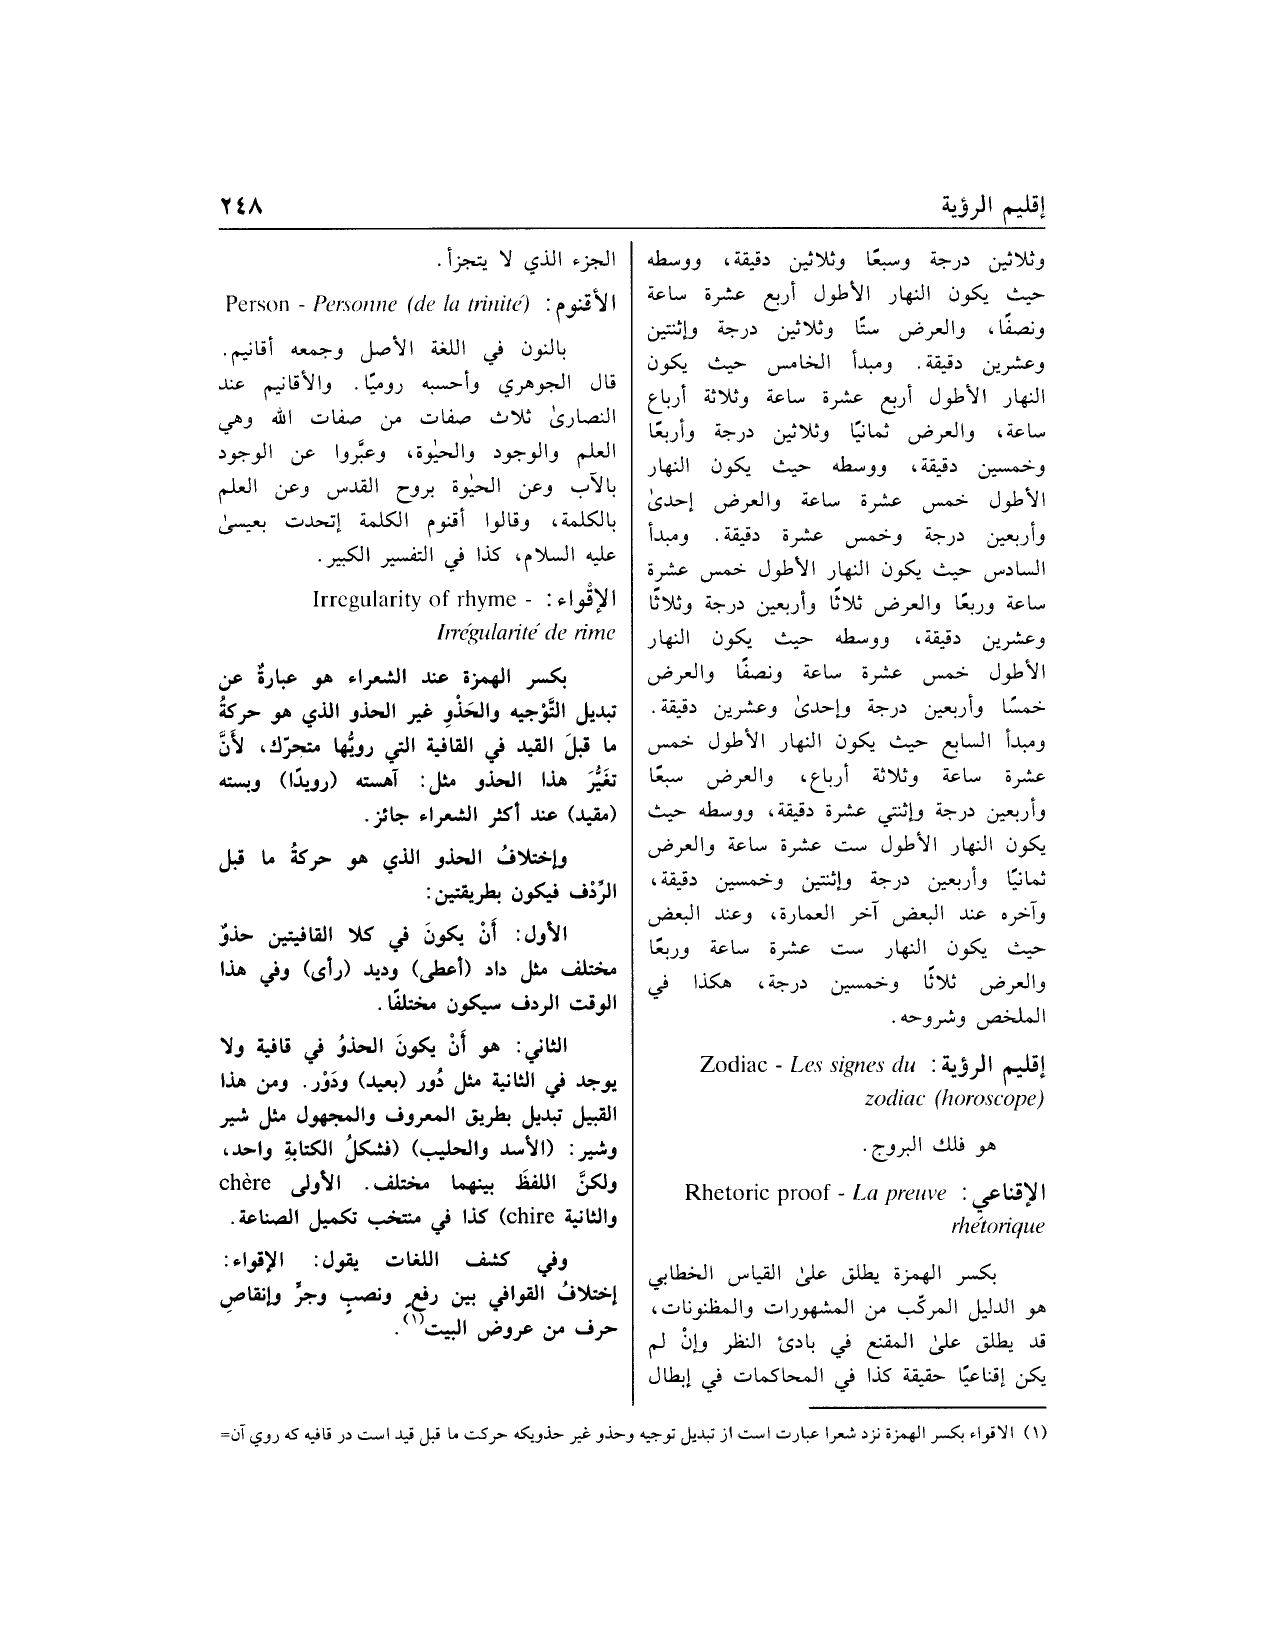 إقليم الرؤية
٢٤٨
وثلاثين درجة وسبعًا وثلاثين دقيقة، ووسطه
حيث يكون النهار الأطول أربع عشرة ساعة
ونصفًا، والعرض ستًا وثلاثين درجة وإثنتين
وعشرين دقيقة. ومبدأ الخامس حيث يكون
النهار الأطول أربع عشرة ساعة وثلاثة أرباع
ساعة، والعرض ثمانيًا وثلاثين درجة وأربعًا
وخمسين دقيقة، ووسطه حيث يكون النهار
الأطول خمس عشرة ساعة والعرض إحدىٰ
وأربعين درجة وخمس عشرة دقيقة. ومبدأ
السادس حيث يكون النهار الأطول خمس عشرة
ساعة وربعًا والعرض ثلاثًا وأربعين درجة وثلاثًا
وعشرين دقيقة، ووسطه حيث يكون النهار
الأطول خمس عشرة ساعة ونصفًا والعرض
خمسًا وأربعين درجة وإحدىٰ وعشرين دقيقة.
ومبدأ السابع حيث يكون النهار الأطول خمس
عشرة ساعة وثلاثة أرباع، والعرض سبعًا
وأربعين درجة وإثنتي عشرة دقيقة، ووسطه حيث
يكون النهار الأطول ست عشرة ساعة والعرض
ثمانيًا وأربعين درجة وإثنتين وخمسين دقيقة،
وآخره عند البعض آخر العمارة، وعند البعض
حيث يكون النهار ست عشرة ساعة وربعًا
والعرض ثلاثًا وخمسين درجة، هكذا في
الملخص وشروحه.
إقليم الرؤية: Zodiac - Les signes du
zodiac (horoscope)
هو فلك البروج.
الإقناعي: Rhetoric proof - La preuve
rhétorique
بكسر الهمزة يطلق علىٰ القياس الخطابي
هو الدليل المركّب من المشهورات والمظنونات،
قد يطلق علىٰ المقنع في بادئ النظر وإنْ لم
يكن إقناعيًا حقيقة كذا في المحاكمات في إبطال
الجزء الذي لا يتجزأ.
الأقنوم: Person - Personne (de la trinité)
بالنون في اللغة الأصل وجمعه أقانيم.
قال الجوهري وأحسبه روميًا. والأقانيم عند
النصارىٰ ثلاث صفات من صفات الله وهي
العلم والوجود والحيٰوة، وعبَّروا عن الوجود
بالآب وعن الحيٰوة بروح القدس وعن العلم
بالكلمة، وقالوا أقنوم الكلمة إتحدت بعيسىٰ
عليه السلام، كذا في التفسير الكبير.
الإقْواء: Irregularity of rhyme -
Irrégularité de rime
بكسر الهمزة عند الشعراء هو عبارةٌ عن
تبديل التَّوْجيه والحَذْوِ غير الحذو الذي هو حركةُ
ما قبلَ القيد في القافية التي رويُّها متحرّك، لأنَّ
تغَيُّرَ هذا الحذو مثل: آهسته (رويدًا) وبسته
(مقيد) عند أكثر الشعراء جائز.
وإختلافُ الحذو الذي هو حركةُ ما قبل
الرِّدْف فيكون بطريقتين:
الأول: أَنْ يكونَ في كلا القافيتين حذوٌ
مختلف مثل داد (أعطى) وديد (رأى) وفي هذا
الوقت الردف سيكون مختلفًا.
الثاني: هو أَنْ يكونَ الحذوُ في قافية ولا
يوجد في الثانية مثل دُور (بعيد) ودَوْر. ومن هذا
القبيل تبديل بطريق المعروف والمجهول مثل شير
وشير: (الأسد والحليب) (فشكلُ الكتابةِ واحد،
ولكنَّ اللفظَ بينهما مختلف. الأولى chère
والثانية chire) كذا في منتخب تكميل الصناعة.
وفي كشف اللغات يقول: الإقواء:
إختلافُ القوافي بين رفعٍ ونصبٍ وجرٍّ وإنقاصِ
حرف من عروض البيت(١).
(١) الاقواء بكسر الهمزة نزد شعرا عبارت است از تبديل توجيه وحذو غير حذويكه حركت ما قبل قيد است در قافيه كه روي آن=